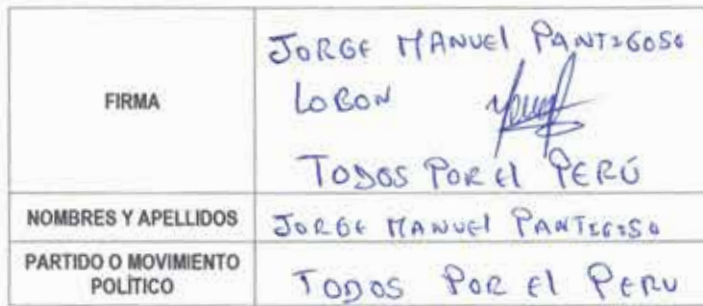 FIRMA
JORGE MANUEL PANTIGOSO
LOBON
TODOS POR El PERÚ
NOMBRES Y APELLIDOS
JORGE MANUEL PANTIGOSO
PARTIDO O MOVIMIENTO
POLÍTICO
TODOS POR El PERU